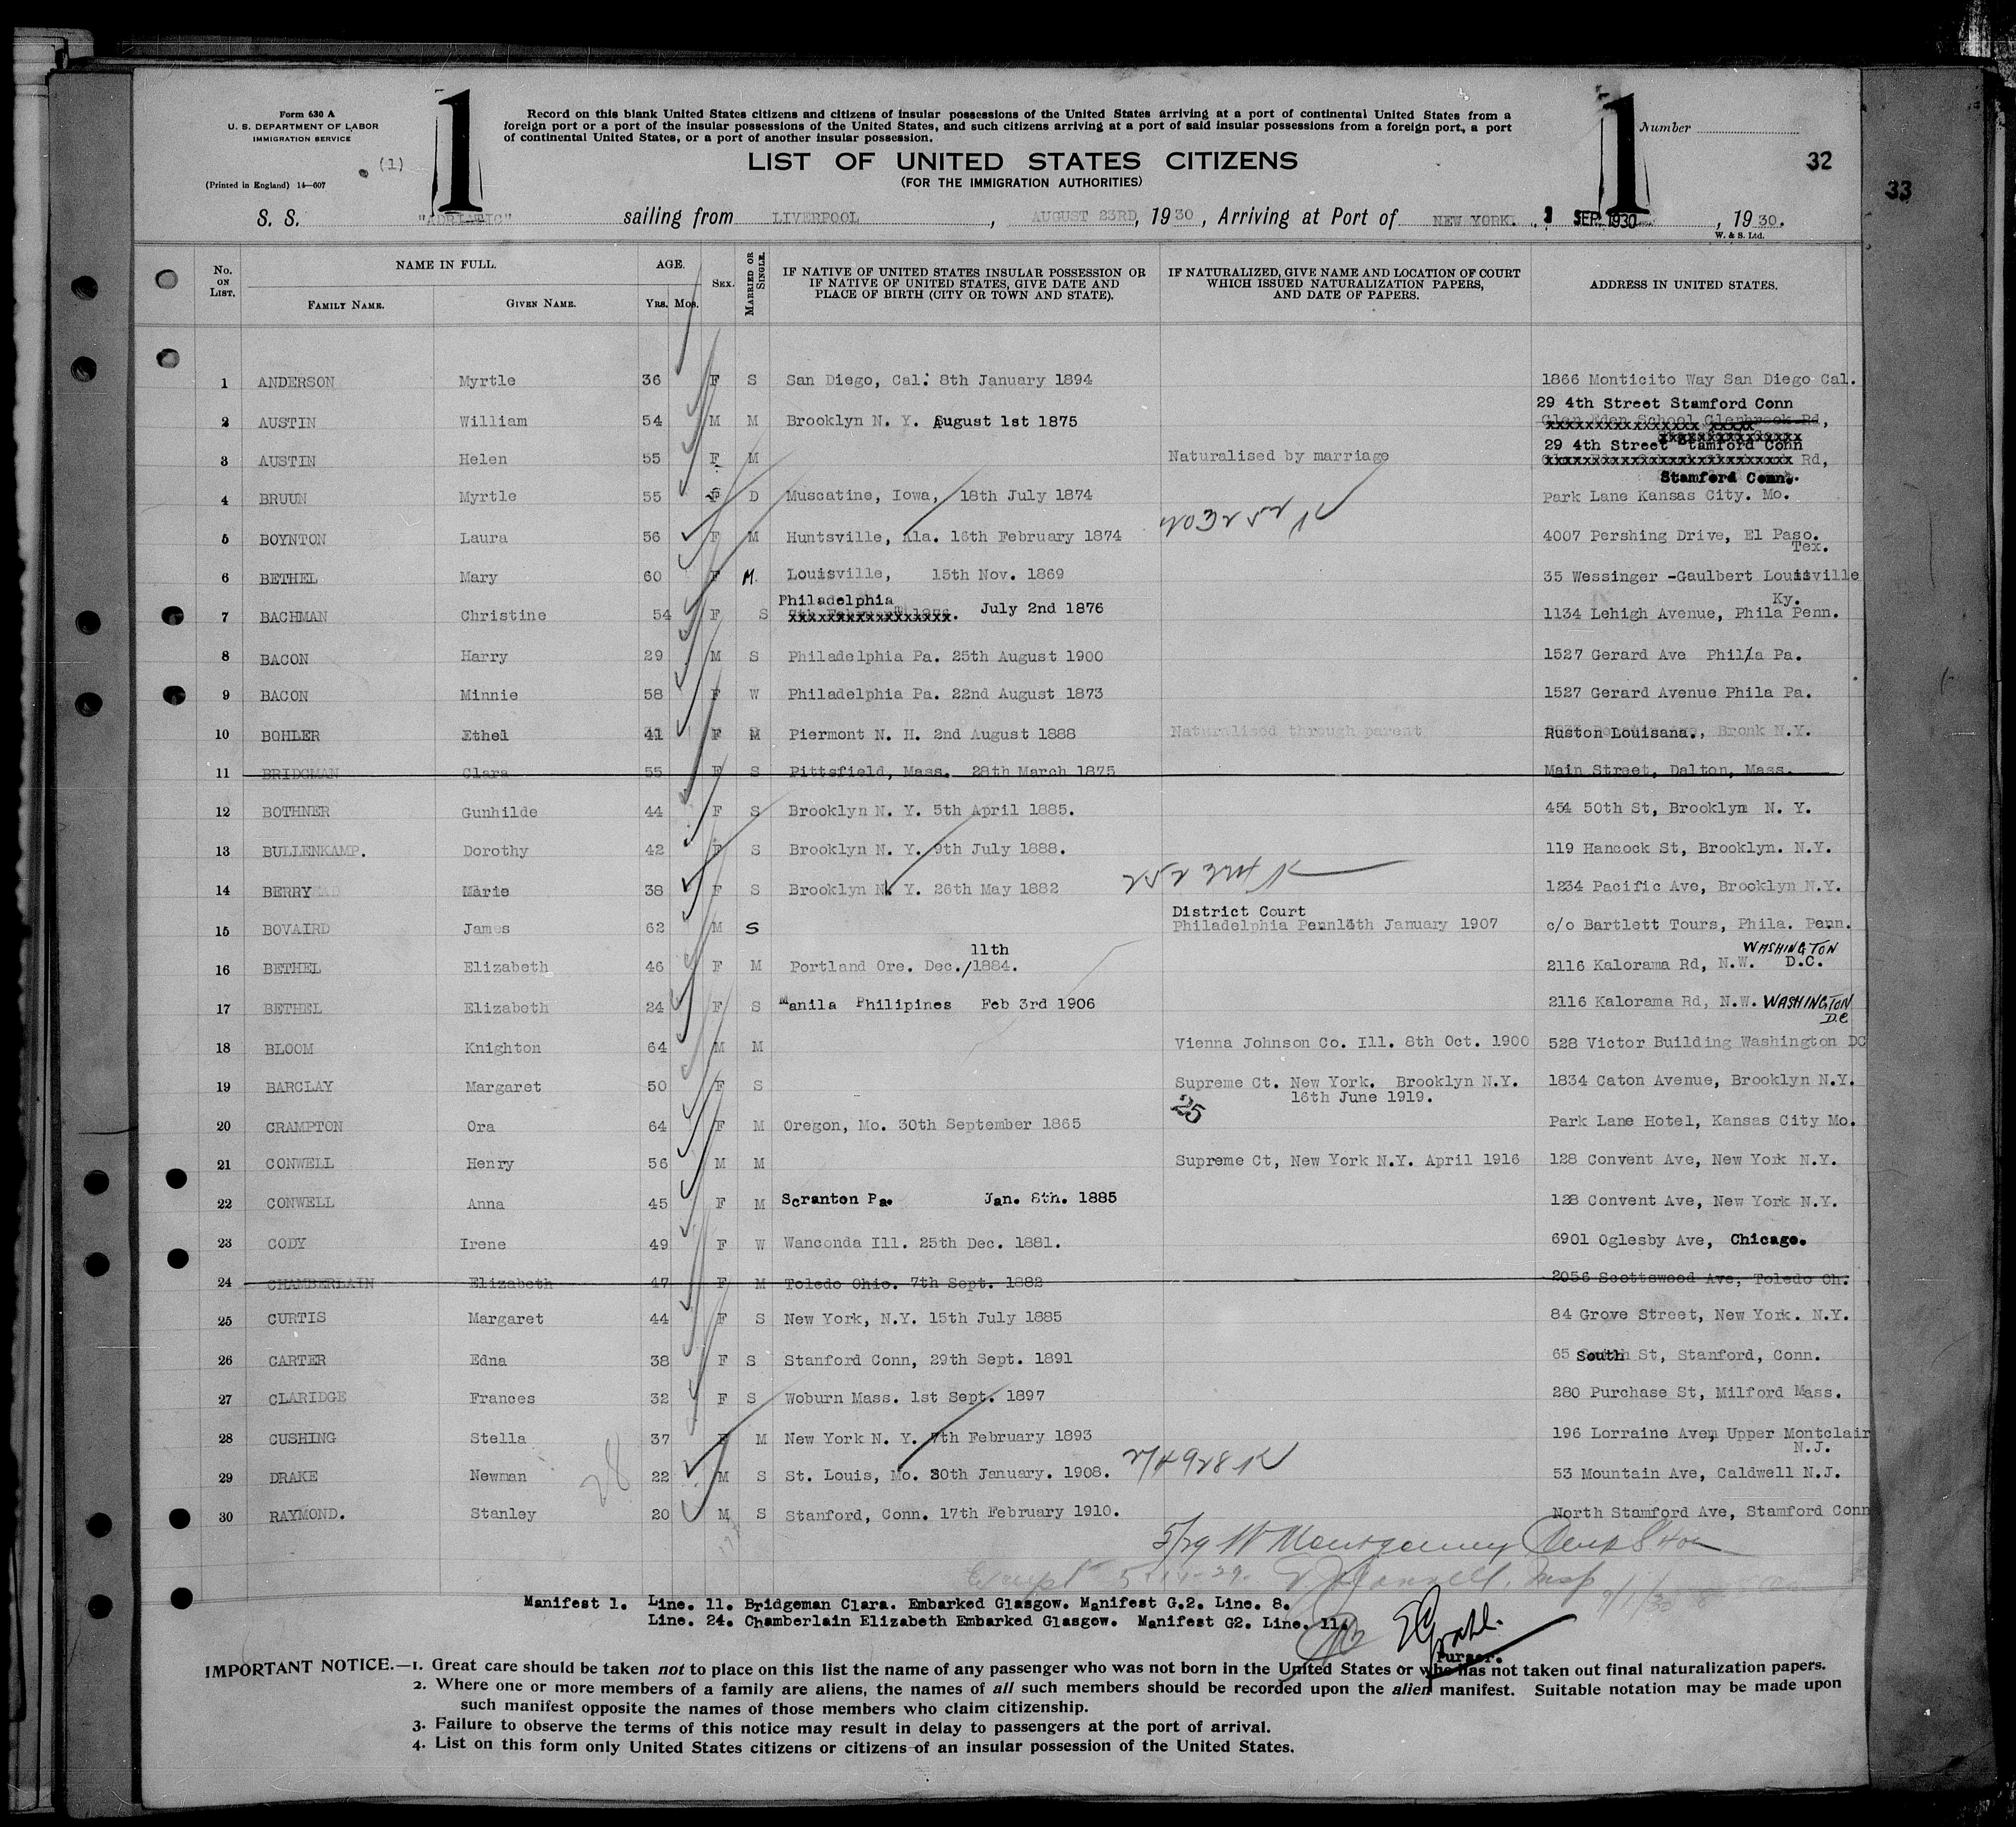 Form 630 A
U. S. DEPARTMENT OF LABOR
IMMIGRATION SERVICE
(1)
(Printed in England) 14—607
1
Record on this blank United States citizens and citizens of insular possessions of the United States arriving at a port of continental United States from a
foreign port or a port of the insular possessions of the United States, and such citizens arriving at a port of said insular possessions from a foreign port, a port
of continental United States, or a port of another insular possession.
LIST OF UNITED STATES CITIZENS
(FOR THE IMMIGRATION AUTHORITIES)
1
Number
32
33
S. S. "ADRIATIC" sailing from LIVERPOOL , AUGUST 23RD, 1930, Arriving at Port of NEW YORK. 1 SEP. 1930 , 1930.
W. & S. Ltd.
No. ON LIST. NAME IN FULL. FAMILY NAME. GIVEN NAME. AGE. Yrs. Mos. SEX. MARRIED OR SINGLE. IF NATIVE OF UNITED STATES INSULAR POSSESSION OR IF NATIVE OF UNITED STATES, GIVE DATE AND PLACE OF BIRTH (CITY OR TOWN AND STATE). IF NATURALIZED, GIVE NAME AND LOCATION OF COURT WHICH ISSUED NATURALIZATION PAPERS, AND DATE OF PAPERS. ADDRESS IN UNITED STATES.
1 ANDERSON Myrtle 36 F S San Diego, Cal. 8th January 1894 1866 Monticito Way San Diego Cal.
29 4th Street Stamford Conn
2 AUSTIN William 54 M M Brooklyn N. Y. August 1st 1875 Glen Eden School Glenbrook Rd,
29 4th Street Stamford Conn
3 AUSTIN Helen 55 F M Naturalised by marriage Rd,
Stamford Conn.
4 BRUUN Myrtle 55 F D Muscatine, Iowa, 18th July 1874 Park Lane Kansas City. Mo.
5 BOYNTON Laura 56 F M Huntsville, Ala. 16th February 1874 4007 Pershing Drive, El Paso.
Tex.
6 BETHEL Mary 60 F M. Louisville, 15th Nov. 1869 35 Wessinger -Gaulbert Louisville
Ky.
7 BACHMAN Christine 54 F S Philadelphia July 2nd 1876 1134 Lehigh Avenue, Phila Penn.
8 BACON Harry 29 M S Philadelphia Pa. 25th August 1900 1527 Gerard Ave Phila Pa.
9 BACON Minnie 58 F W Philadelphia Pa. 22nd August 1873 1527 Gerard Avenue Phila Pa.
10 BOHLER Ethel 41 F M Piermont N. H. 2nd August 1888 Naturalised through parent Ruston Louisana., Bronk N.Y.
11 BRIDGMAN Clara 55 F S Pittsfield, Mass. 28th March 1875 Main Street, Dalton, Mass.
12 BOTHNER Gunhilde 44 F S Brooklyn N. Y. 5th April 1885. 454 50th St, Brooklyn N. Y.
13 BULLENKAMP. Dorothy 42 F S Brooklyn N. Y. 9th July 1888. 119 Hancock St, Brooklyn. N.Y.
14 BERRY Marie 38 F S Brooklyn N. Y. 26th May 1882 1234 Pacific Ave, Brooklyn N.Y.
District Court
15 BOVAIRD James 62 M S Philadelphia Penn 14th January 1907 c/o Bartlett Tours, Phila. Penn.
11th WASHINGTON
16 BETHEL Elizabeth 46 F M Portland Ore. Dec./1884. 2116 Kalorama Rd, N.W. D.C.
17 BETHEL Elizabeth 24 F S Manila Philipines Feb 3rd 1906 2116 Kalorama Rd, N.W. WASHINGTON
D.C
18 BLOOM Knighton 64 M M Vienna Johnson Co. Ill. 8th Oct. 1900 528 Victor Building Washington DC
19 BARCLAY Margaret 50 F S Supreme Ct. New York. Brooklyn N.Y. 1834 Caton Avenue, Brooklyn N.Y.
16th June 1919.
25
20 CRAMPTON Ora 64 F M Oregon, Mo. 30th September 1865 Park Lane Hotel, Kansas City Mo.
21 CONWELL Henry 56 M M Supreme Ct, New York N.Y. April 1916 128 Convent Ave, New York N.Y.
22 CONWELL Anna 45 F M Scranton Pa. Jan. 8th. 1885 128 Convent Ave, New York N.Y.
23 CODY Irene 49 F W Wanconda Ill. 25th Dec. 1881. 6901 Oglesby Ave, Chicago.
24 CHAMBERLAIN Elizabeth 47 F M Toledo Ohio. 7th Sept. 1882 2056 Scottswood Ave, Toledo Oh.
25 CURTIS Margaret 44 F S New York, N.Y. 15th July 1885 84 Grove Street, New York. N.Y.
26 CARTER Edna 38 F S Stanford Conn, 29th Sept. 1891 65 South St, Stanford, Conn.
27 CLARIDGE Frances 32 F S Woburn Mass. 1st Sept. 1897 280 Purchase St, Milford Mass.
28 CUSHING Stella 37 F M New York N. Y. 7th February 1893 196 Lorraine Ave, Upper Montclair
N.J.
29 DRAKE Newman 22 M S St. Louis, Mo. 30th January. 1908. 53 Mountain Ave, Caldwell N.J.
28
30 RAYMOND. Stanley 20 M S Stanford, Conn. 17th February 1910. North Stamford Ave, Stamford Conn
5/29 W Montgomery
Manifest 1. Line. 11. Bridgeman Clara. Embarked Glasgow. Manifest G.2. Line. 8.
Line. 24. Chamberlain Elizabeth Embarked Glasgow. Manifest G2. Line. 11.
Purser.
IMPORTANT NOTICE.—1. Great care should be taken not to place on this list the name of any passenger who was not born in the United States or who has not taken out final naturalization papers.
2. Where one or more members of a family are aliens, the names of all such members should be recorded upon the alien manifest. Suitable notation may be made upon
such manifest opposite the names of those members who claim citizenship.
3. Failure to observe the terms of this notice may result in delay to passengers at the port of arrival.
4. List on this form only United States citizens or citizens of an insular possession of the United States.